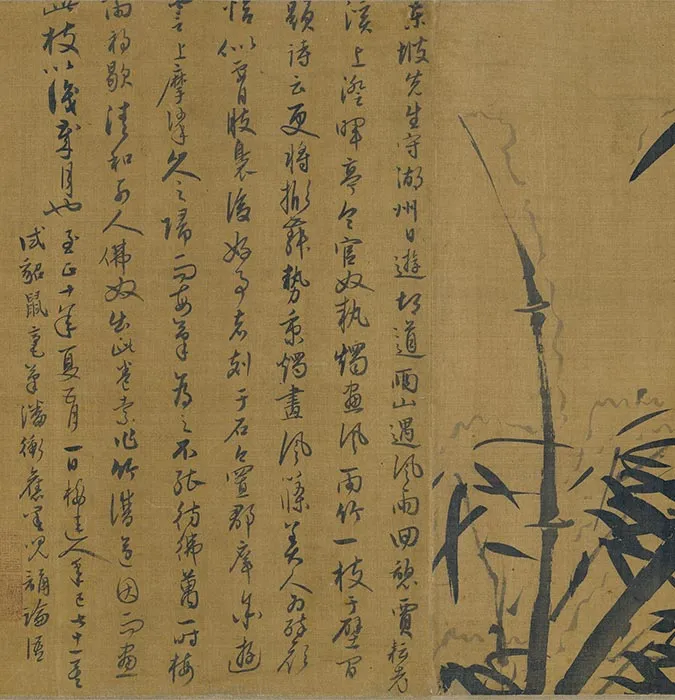 東坡先生守湖州日遊何道兩山遇風雨回憩賈耘老
溪上澄暉亭令官奴執燭畫風雨竹一枝于壁間
題詩云更將掀舞勢秉燭畫風篠美人為破顏
恰似腰肢裊後好事者刻于石今置郡庠余遊
霅上摩挲久之歸而每筆為之不能彷彿萬一時梅
雨初歇清和可人佛奴出此卷索作竹譜遂因而畫
此枝以識歲月也至正十年夏五月一日梅道人年已七十一矣
試貂鼠毫筆潘衡舊墨兒誦論語